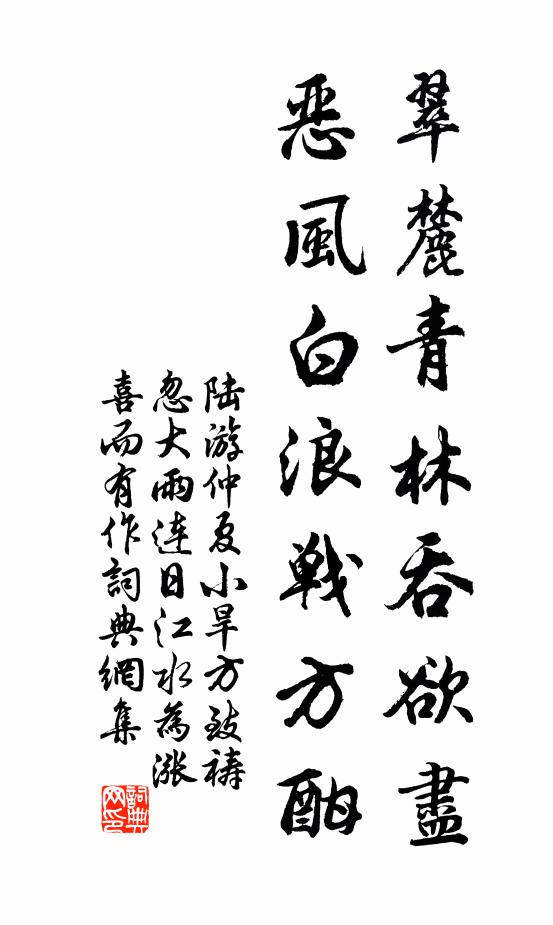 翠麓青林吞欲盡
惡風白浪戰方酣
陆游仲夏小旱方致祷
忽大雨连日江水為漲
喜而有作詞典網集
詞典网印